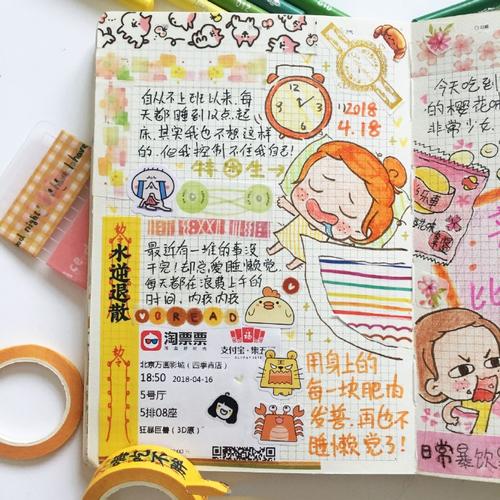 自从不上班以来,每
天都睡到12点起
床,其实我也不想这样
的,但我控制不住我自己!
2018
4.18
水逆退散
最近有一堆的事没
干完!却总爱睡懒觉,
每天都在浪费上午的
时间,内疚内疚
READ
淘票票
支付宝·集五
北京万画影城(四季青店)
18:50 2018-04-16
5号厅
5排08座
狂暴巨兽(3D惠)
用身上的
每一块肥肉
发誓,再也不
睡懒觉了!
今天吃到
的樱花
非常少女
日常暴饮